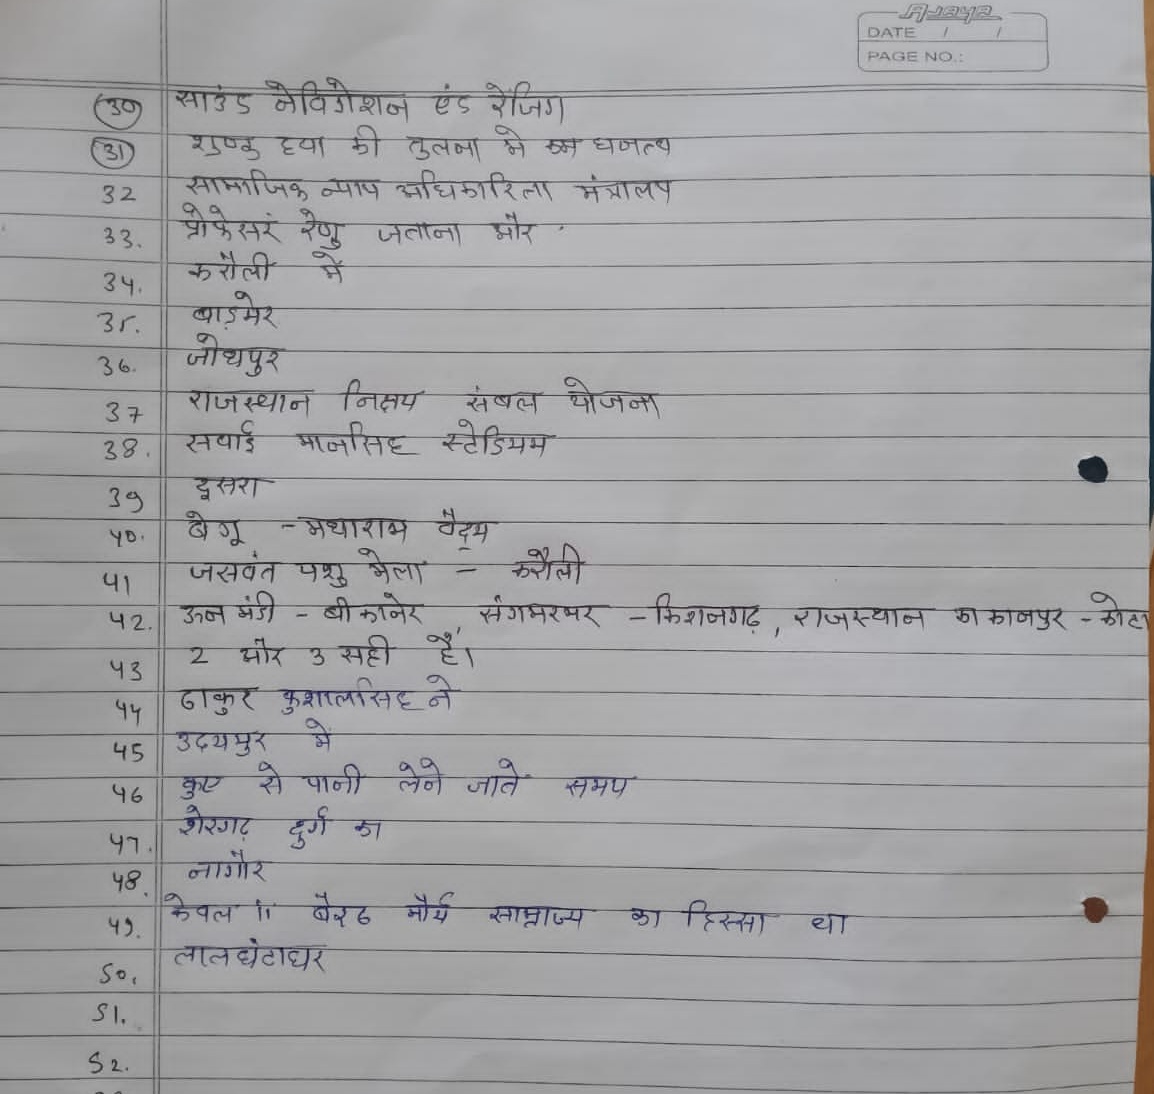 Ajaya
DATE / /
PAGE NO.:
(30) साउंड नेविगेशन एंड रेंजिग
(31) शुष्क हवा की तुलना मे कम घनत्व
32 सामाजिक न्याय अधिकारिता मंत्रालय
33. प्रोफेसर रेणु जताना और
34. करौली में
35. बाड़मेर
36. जोधपुर
37 राजस्थान निक्षय संबल योजना
38. सवाई मानसिंह स्टेडियम
39 दूसरा
40. बेगू - मघाराम वैद्य
41 जसवंत पशु मेला - करौली
42. ऊन मंडी - बीकानेर, संगमरमर - किशनगढ़, राजस्थान का कानपुर - कोटा
43 2 और 3 सही है।
44 ठाकुर कुशालसिंह ने
45 उदयपुर में
46 कुए से पानी लेने जाते समय
47. शेरगढ़ दुर्ग का
48. नागौर
49. केवल II बैराठ मौर्य साम्राज्य का हिस्सा था
50. लालघंटाघर
51.
52.